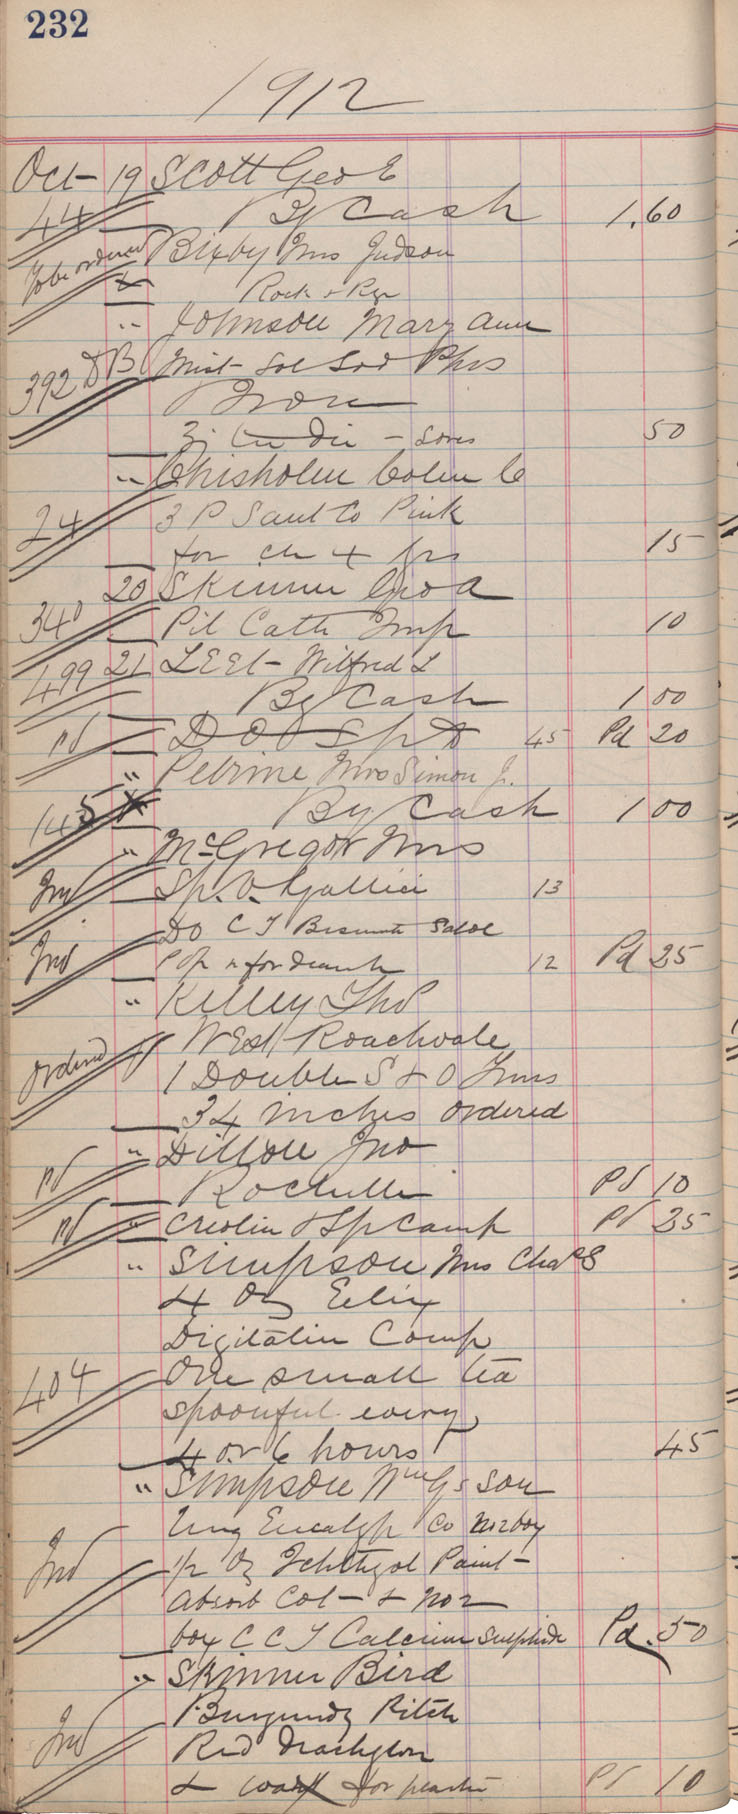 232
1912
Oct 19 Scott Geo E
44 By Cash 1.60
To be ordered Bixby Mrs Judson
Rock & Rye
" Johnson Mary Ann
392 DB Mist Sol Sod Phos
Iron
50
" Chisholm Colin C
24 3 P Co Pink
for 15
20 Skinner Geo A
340 Pil Cath Imp 10
499 21 LEEt - Wilfred L
By Cash 1 00
Pd DO 45 Pd 20
" Petrine Mrs Simon J.
145 By Cash 1 00
" McGregor Mrs
Sp. V. Gallici 13
Do C T Bismuth Salol
for 12 Pd 25
" Kelley Thos
West Roachvale
ordered 1 Double S & O Trus
34 inches ordered
" Dillon Jno
Pd Rochelle Pd 10
Pd " Creolin & Sp Camp Pd 35
" Simpson Mrs Chas S
4 Oz Elix
Digitalin Comp
404 One small tea
spoonful every
4 or 6 hours 45
" Simpson Wm G's Son
Ung Eucalyp Co No 2 boy
Oz Ichthyol Paint -
absorb Cot - & No 2
box C C T Calcium Sulphide Pd. 50
" Skinner Bird
Burgundy Pitch
Red
& wax for Pd 10